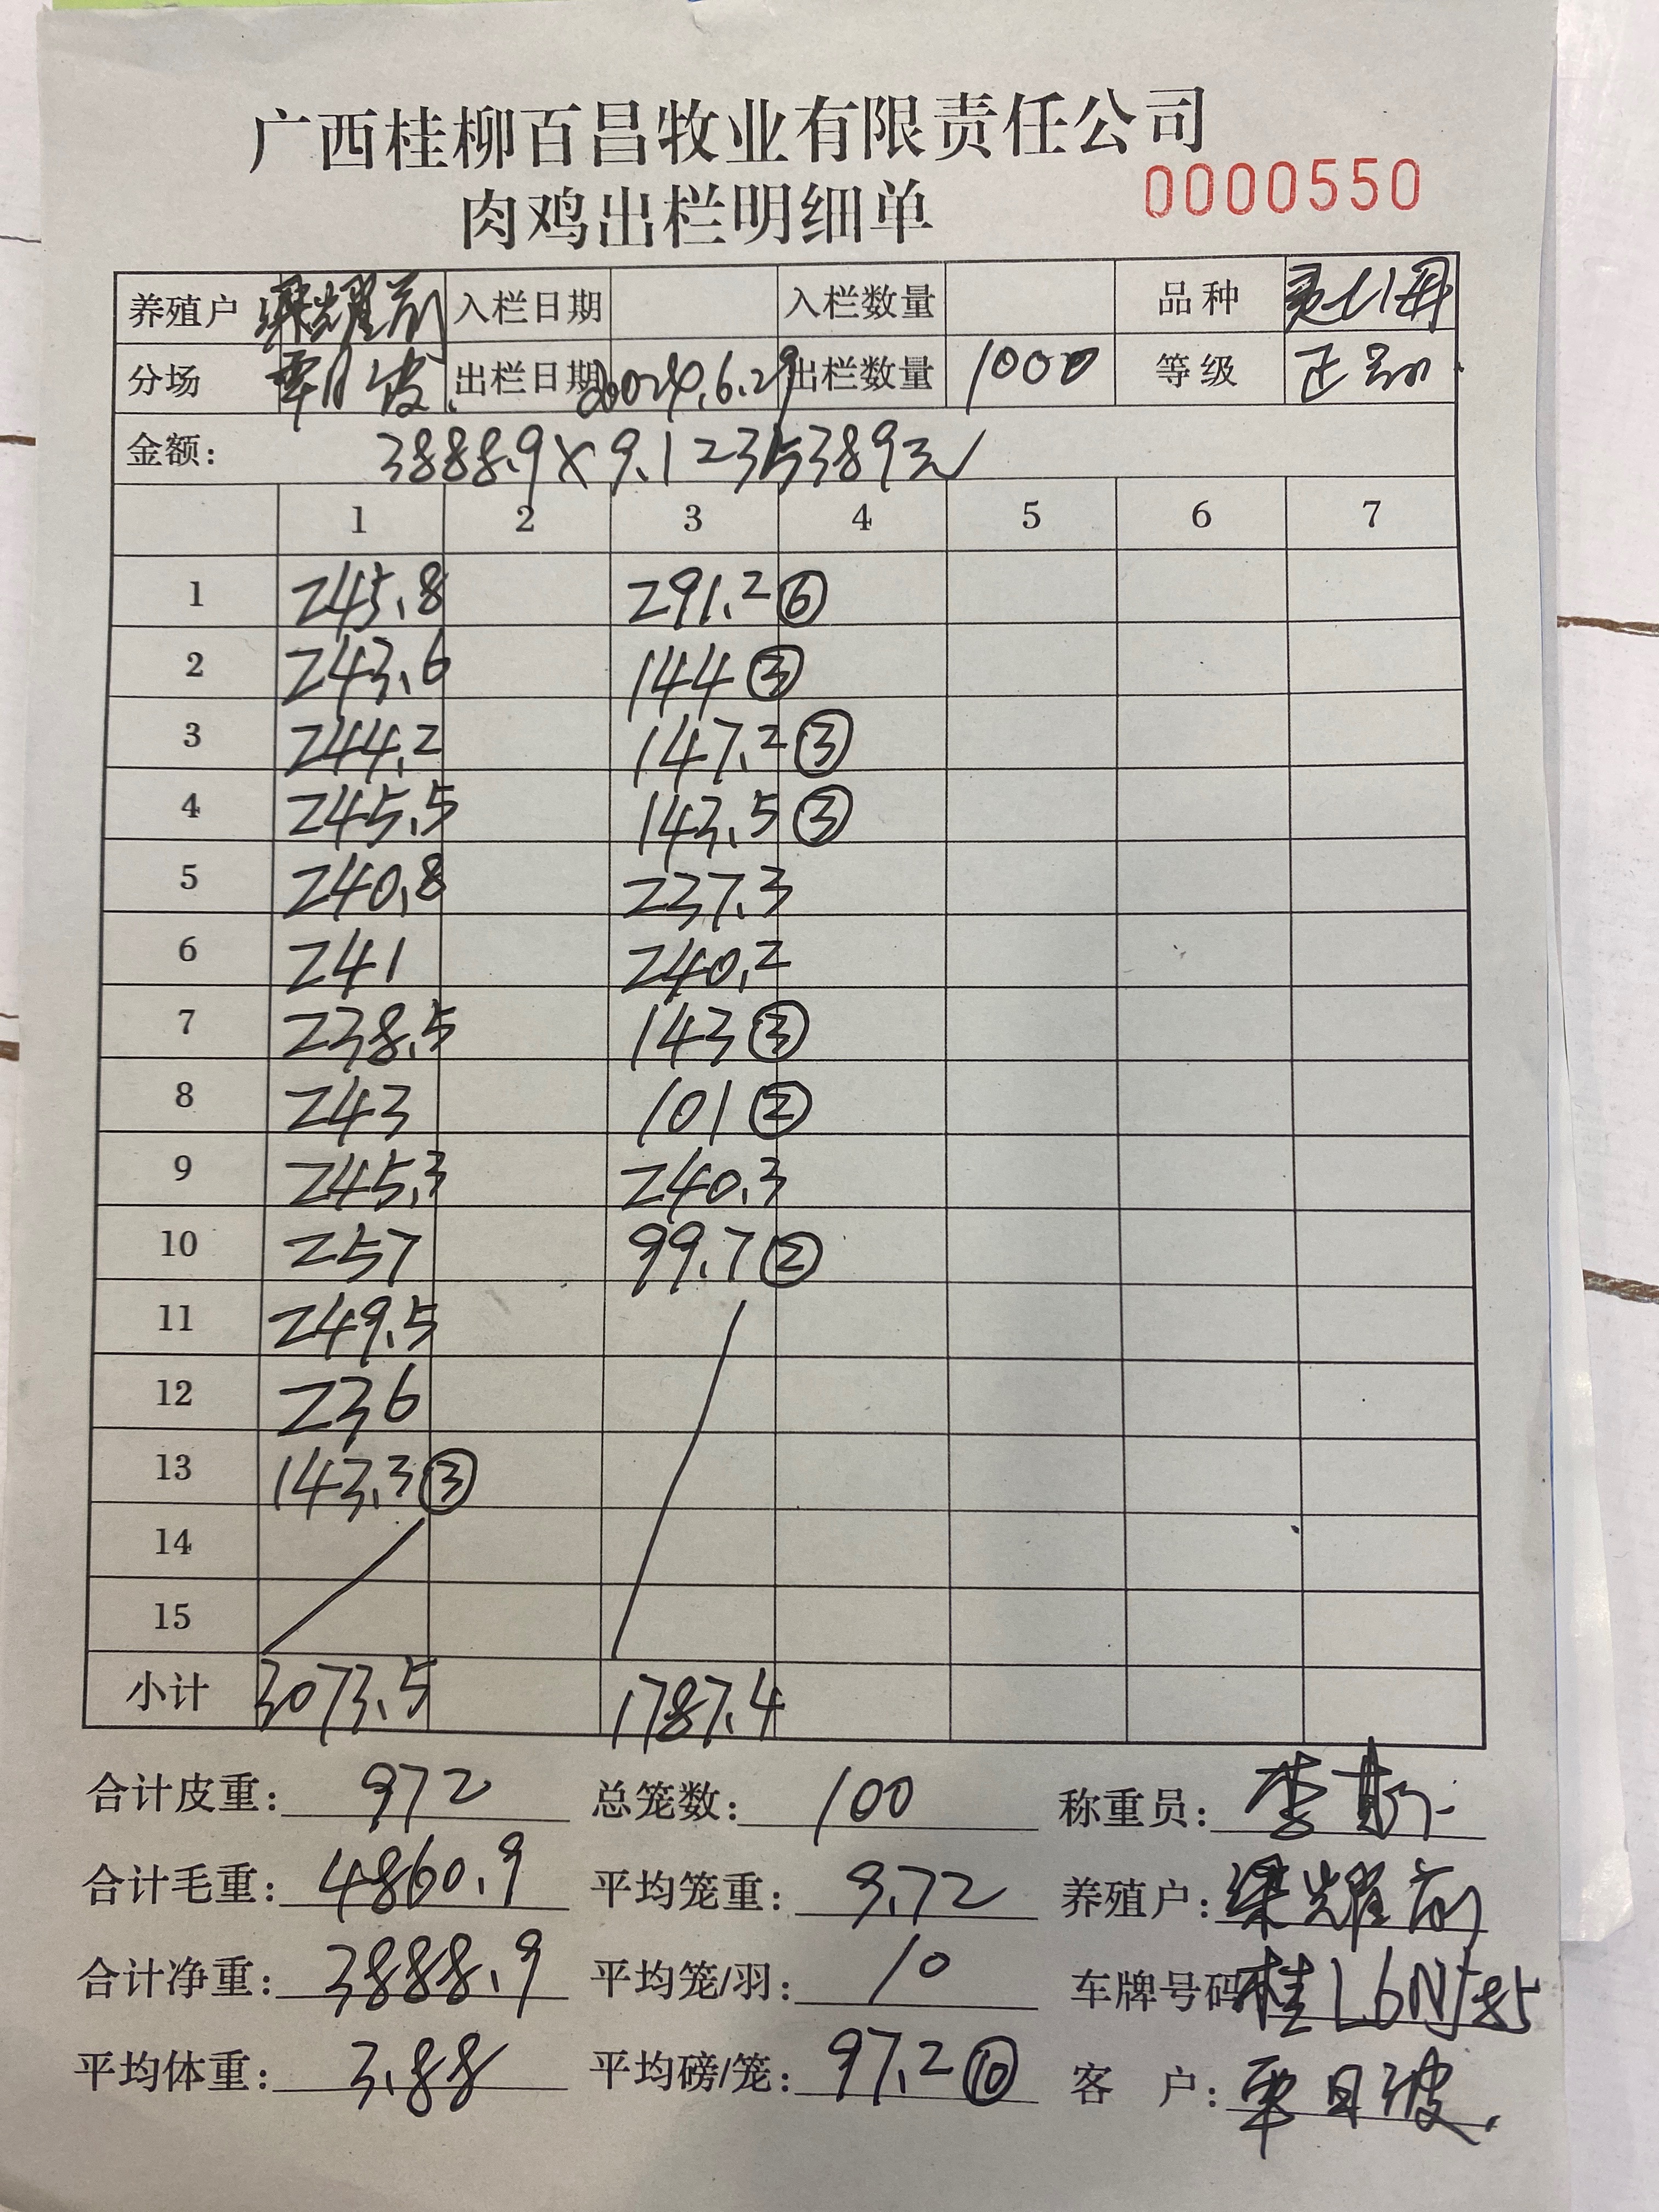 广西桂柳百昌牧业有限责任公司
肉鸡出栏明细单 0000550
养殖户 梁耀 入栏日期 入栏数量 品种
分场 出栏日期 2024.6.29 出栏数量 1000 等级 正
金额: 3888.9×9.1 35389元
1 2 3 4 5 6 7
1 245.8 291.2 ⑥
2 243.6 144 ③
3 244.2 147.2 ③
4 245.5 143.5 ③
5 240.8 237.3
6 241 240.2
7 238.5 143 ③
8 243 101 ②
9 245.3 240.3
10 257 99.7 ②
11 249.5
12 236
13 143.3 ③
14
15
小计 3073.5 1787.4
合计皮重: 972 总笼数: 100 称重员: 李
合计毛重: 4860.9 平均笼重: 9.72 养殖户: 梁耀
合计净重: 3888.9 平均笼/羽: 10 车牌号码 桂L6N
平均体重: 3.88 平均磅/笼: 97.2 ⑩ 客 户: 覃日波